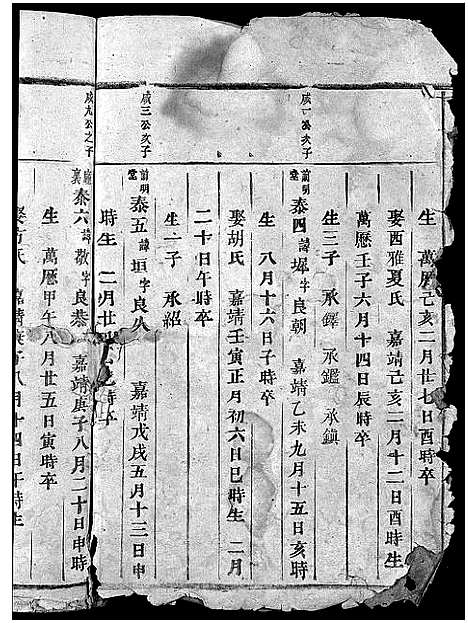 生 萬曆己亥二月廿七日酉時卒
娶西雅夏氏 嘉靖己亥二月十二日酉時生
萬曆壬子六月十四日辰時卒
生三子 承鐸 承鑑 承鎮
咸一公次子
前明堂 泰四 諱墀字良朝 嘉靖乙未九月十五日亥時
生 八月十六日子時卒
娶胡氏 嘉靖壬寅正月初六日巳時生 二月
二十日午時卒
生一子 承紹
咸三公次子
前明堂 泰五 諱垣字良 嘉靖戊戌五月十三日申
時生 二月廿 時卒
咸九公之子
泰六 諱敬字良恭 嘉靖庚子八月二十日申時
生 萬曆甲午八月廿五日寅時卒
娶方氏 嘉靖庚子八月十四日午時生